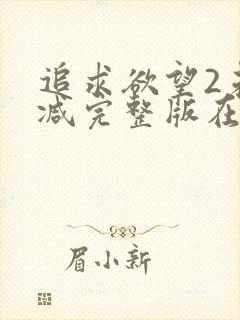 追求欲望2
减完整版在
眉小新